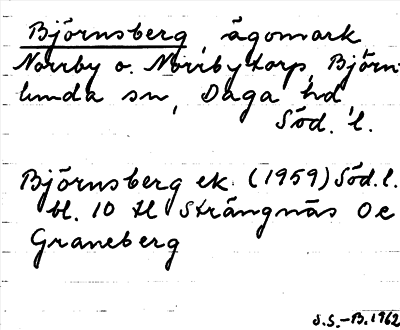 Björnsberg, ägomark
Norrby o. Norrbytorp, Björn-
lunda sn, Daga hd
Söd. l.
Björnsberg ek. (1959) Söd. l.
bl. 10 tl Strängnäs Oe
Graneberg
S.S.-B. 1962